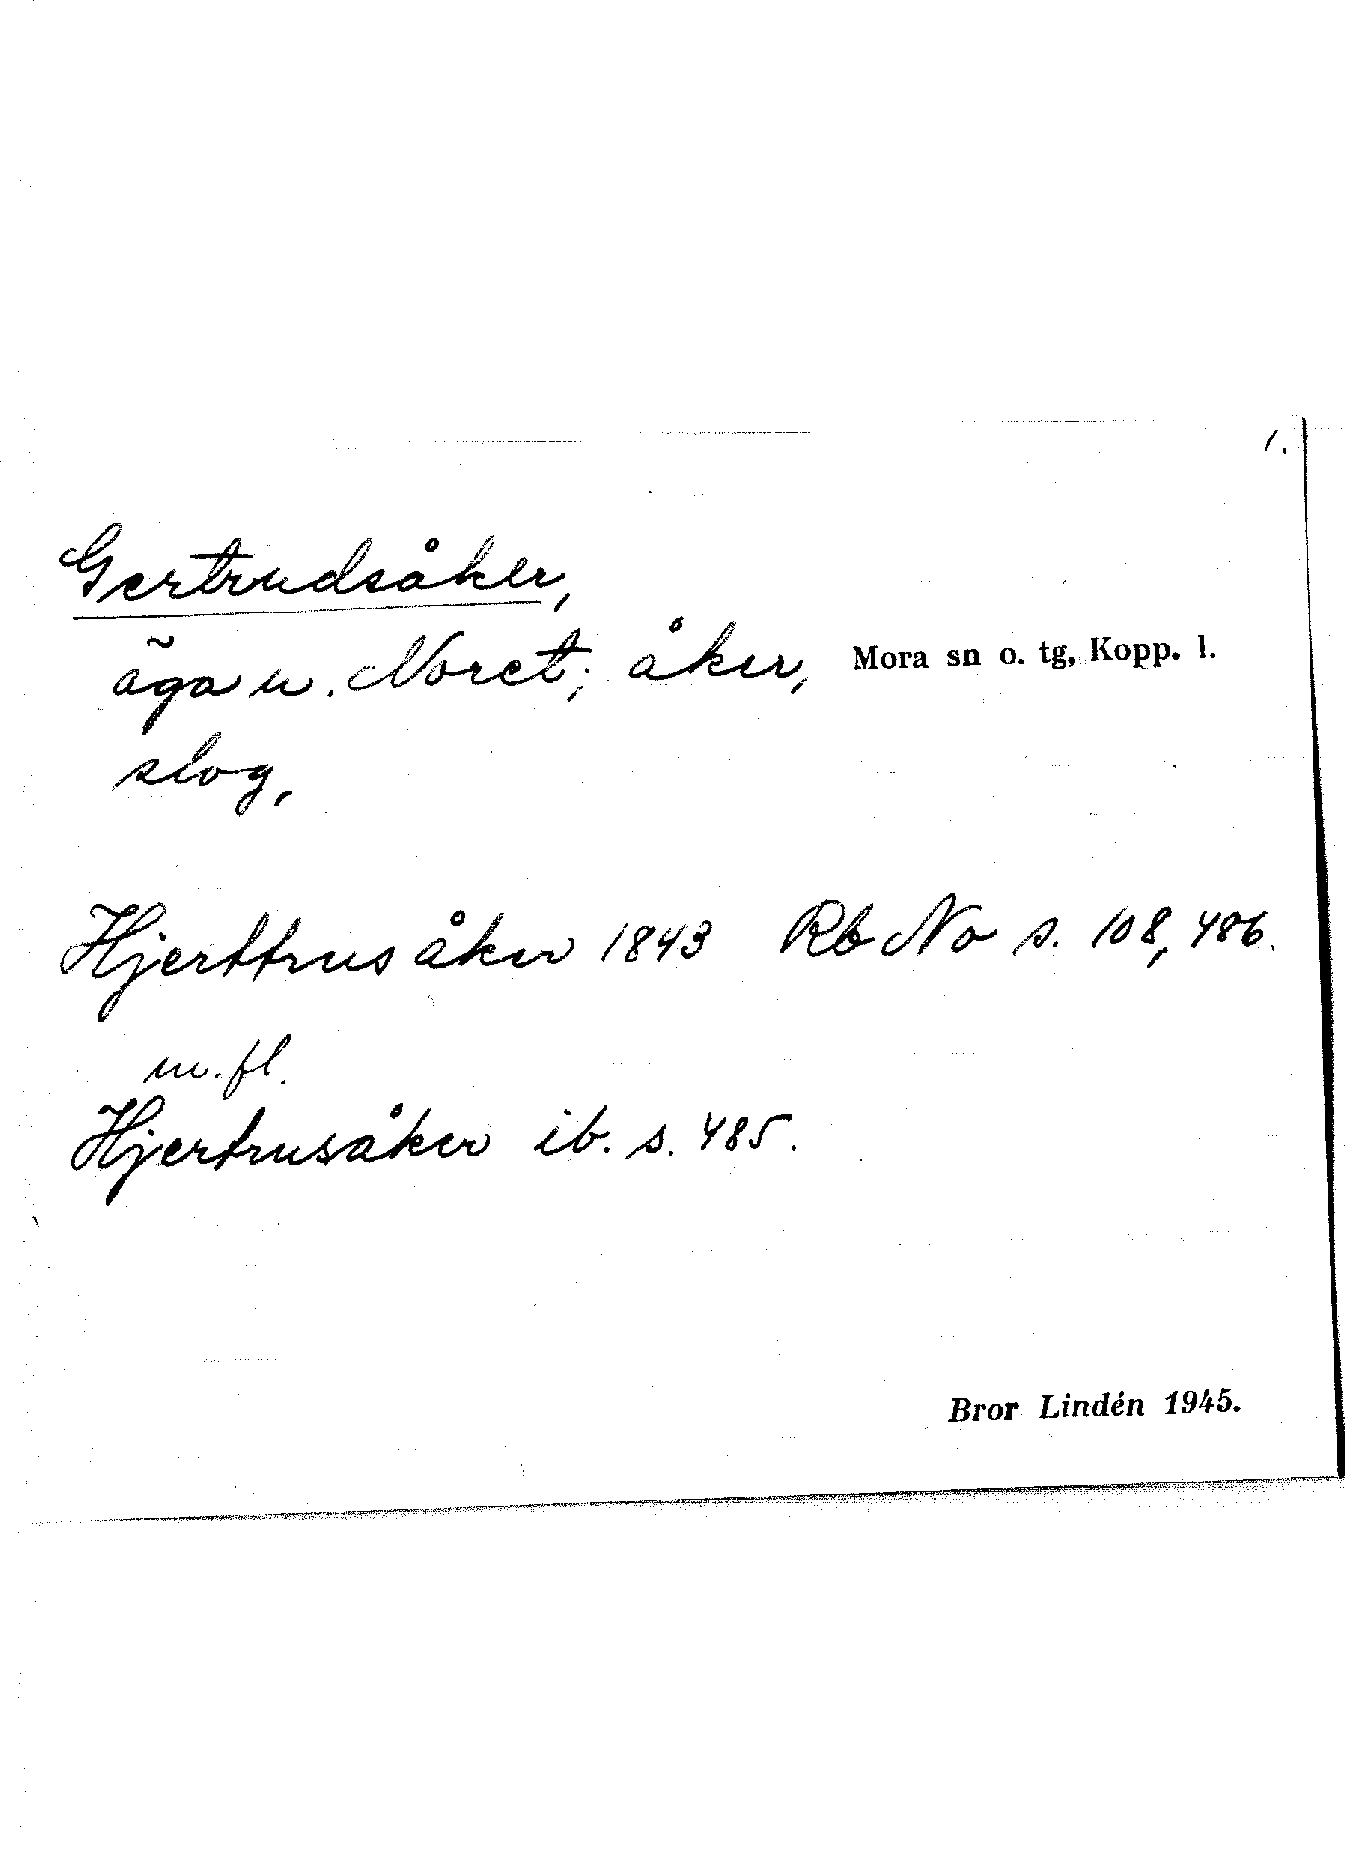 1.
Gertrudsåker,
äga u. Noret; åker, Mora sn o. tg, Kopp. l.
slog,
Hjerttrus åker 1843 Rb No s. 108, 486.
m. fl.
Hjertrusåker ib. s. 485.
Bror Lindén 1945.